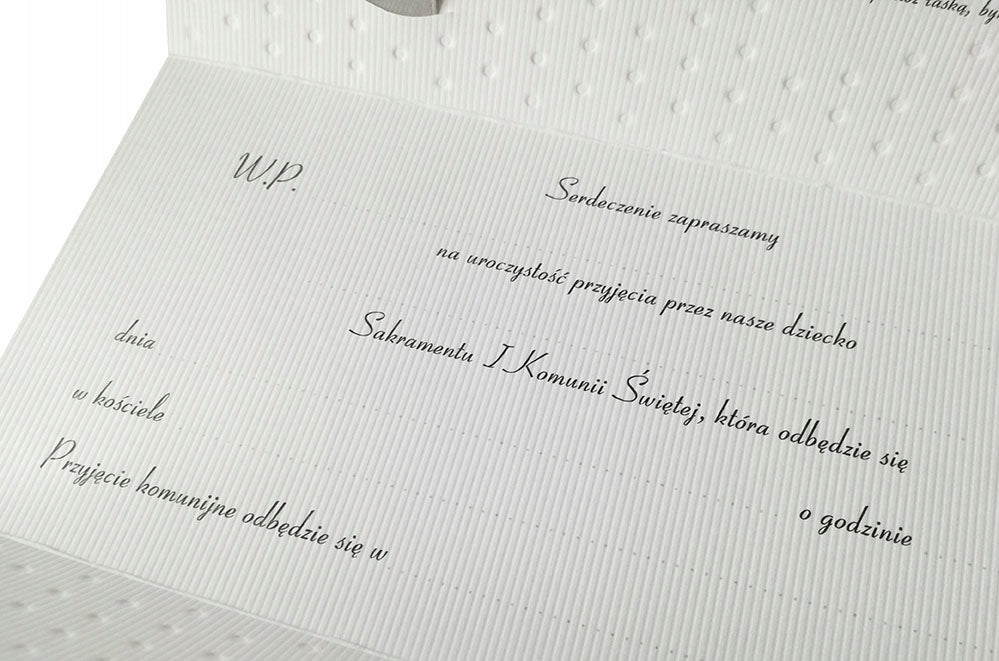 łaską, by
W.P.
Serdecznie zapraszamy
na uroczystość przyjęcia przez nasze dziecko
Sakramentu I Komunii Świętej, która odbędzie się
dnia
o godzinie
w kościele
Przyjęcie komunijne odbędzie się w